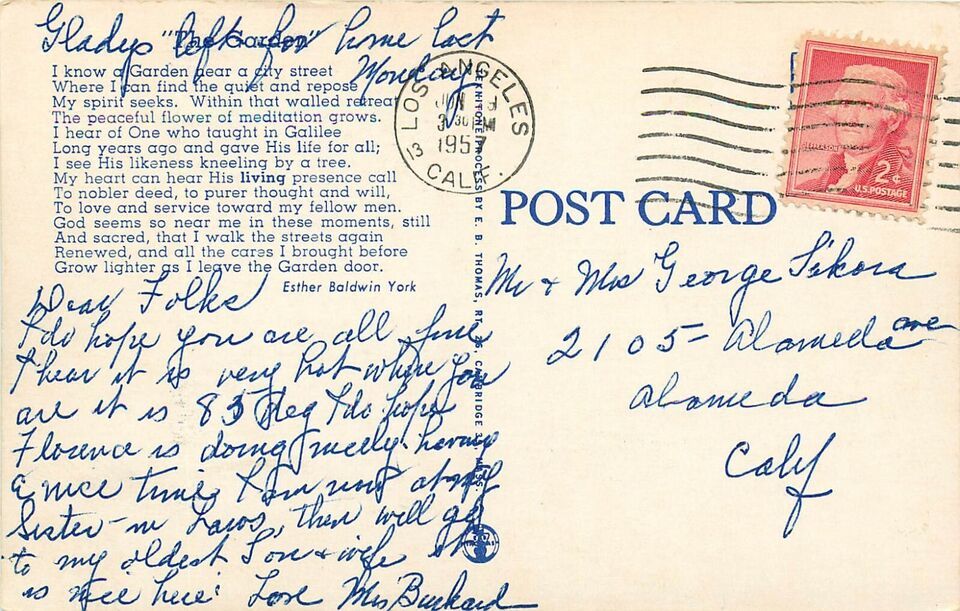 Gladys left for home last
Monday
"The Garden"
I know a Garden near a city street
Where I can find the quiet and repose
My spirit seeks. Within that walled retreat
The peaceful flower of meditation grows.
I hear of One who taught in Galilee
Long years ago and gave His life for all;
I see His likeness kneeling by a tree.
My heart can hear His living presence call
To nobler deed, to purer thought and will,
To love and service toward my fellow men.
God seems so near me in these moments, still
And sacred, that I walk the streets again
Renewed, and all the cares I brought before
Grow lighter as I leave the Garden door.
Esther Baldwin York
Dear Folks
I do hope you are all fine
I hear it is very hot where you
are it is 85 deg I do hope
Florence is doing nicely. having
a nice time, I am now at my
Sister-in Laws, then will go
to my oldest Son & wife it
is nice here: Love Mrs Burkard
TEKNITONE PROCESS BY E. B. THOMAS, RT. 26, CAMBRIDGE MASS.
LOS ANGELES
JUN
3 30 PM
1957
13 CALIF.
JEFFERSON
2¢
U.S. POSTAGE
POST CARD
Mr & Mrs George Sikora
2105 Alameda ave
Alameda
Calif